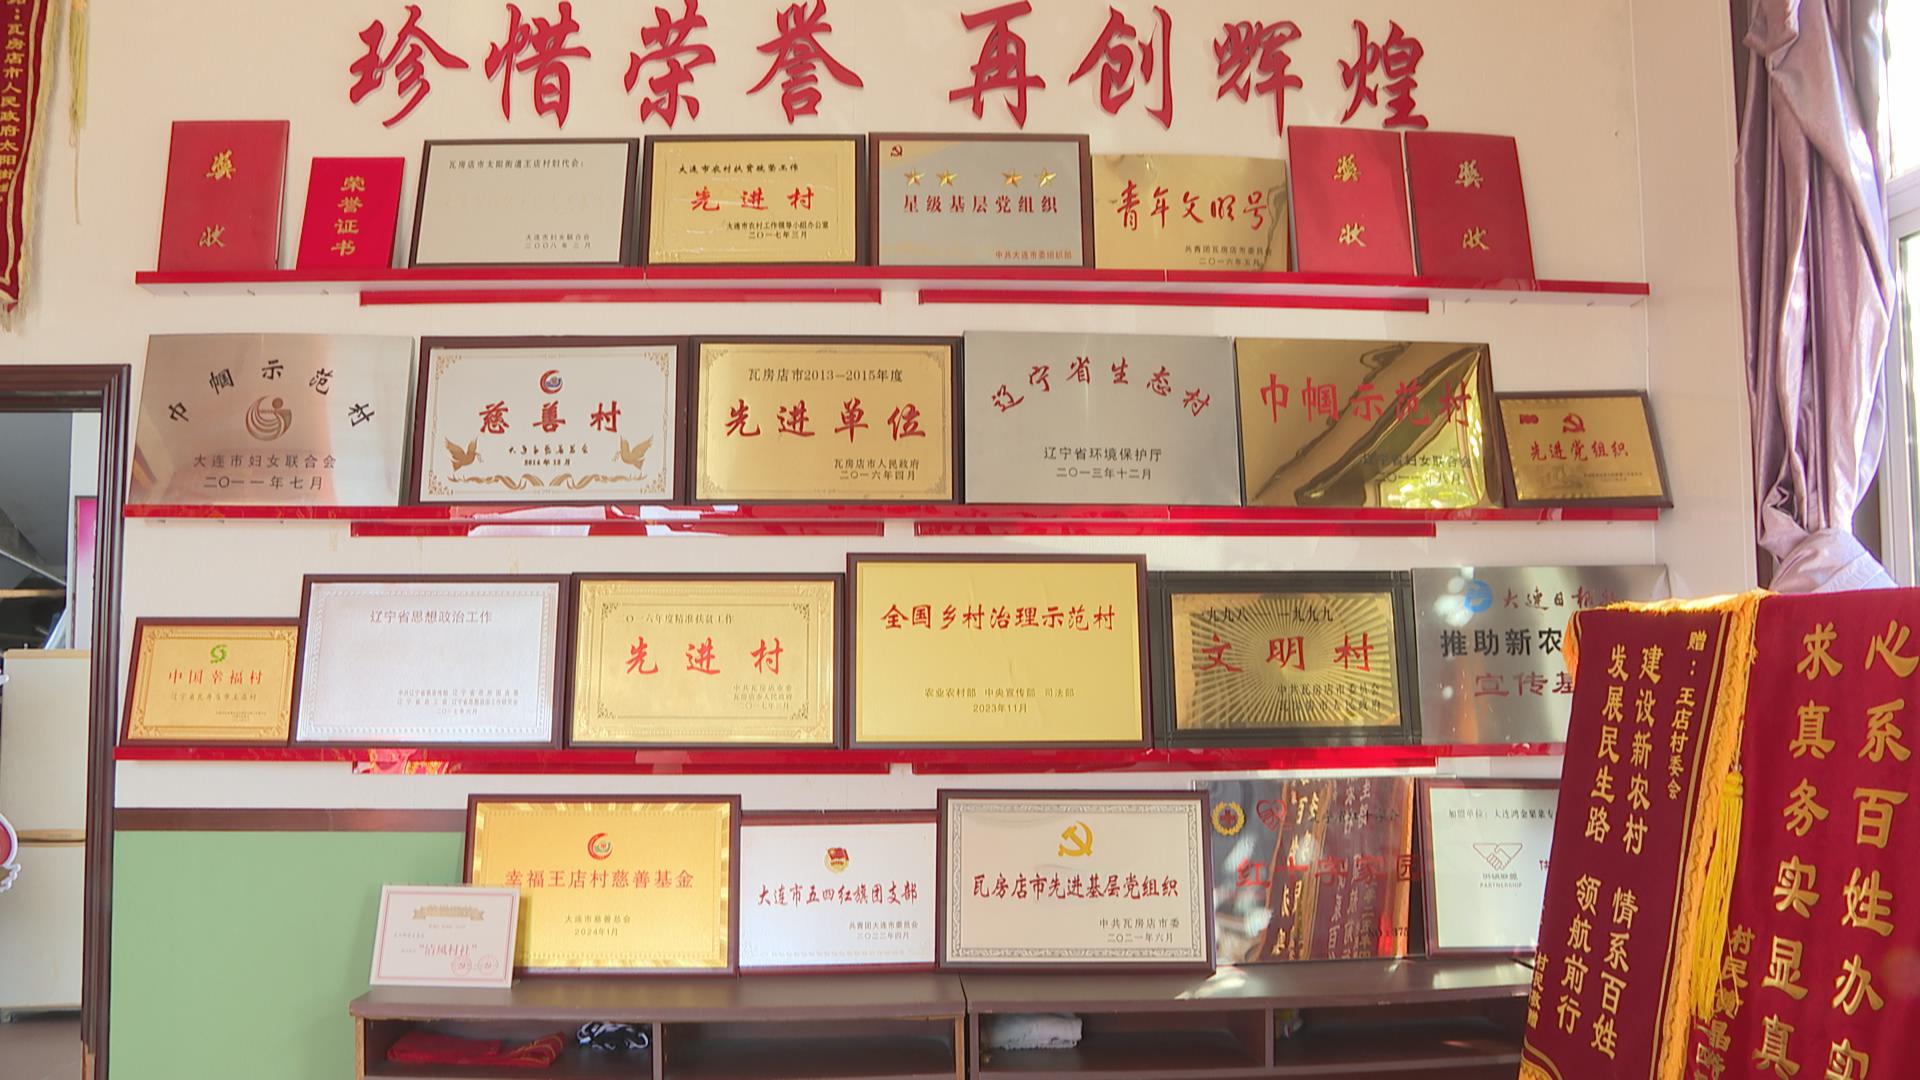 珍惜荣誉 再创辉煌
瓦房店市人民政府太阳街道
奖状
荣誉证书
瓦房店市太阳街道王店村妇代会:
大连市妇女联合会
二〇〇八年三月
大连市农村扶贫扶垫工作
先进村
大连市农村工作领导小组办公室
二〇一七年三月
星级基层党组织
中共大连市委组织部
青年文明号
共青团瓦房店市委员会
二〇一六年五月
奖状
奖状
巾帼示范村
大连市妇女联合会
二〇一一年七月
慈善村
大连市慈善总会
2014年12月
瓦房店市2013—2015年度
先进单位
瓦房店市人民政府
二〇一六年四月
辽宁省生态村
辽宁省环境保护厅
二〇一三年十二月
巾帼示范村
辽宁省妇女联合会
二〇一一年八月
先进党组织
中国幸福村
辽宁省瓦房店市王店村
辽宁省思想政治工作
二〇一七年六月
二〇一六年度精准扶贫工作
先进村
中共瓦房店市委
瓦房店市人民政府
二〇一七年三月
全国乡村治理示范村
农业农村部 中央宣传部 司法部
2023年11月
一九九八 一九九九
文明村
中共瓦房店市委员会
瓦房店市人民政府
大连日报
推助新农
宣传基
幸福王店村慈善基金
大连市慈善总会
2024年1月
“清风村社”
大连市五四红旗团支部
共青团大连市委员会
二〇二二年四月
瓦房店市先进基层党组织
中共瓦房店市委
二〇二一年六月
红十字家园
加盟单位:大连鸿金果蔬专
PARTNERSHIP
赠:王店村委会
建设新农村 情系百姓
发展民生路 领航前行
村民敬赠
心系百姓办实
求真务实显真
村民